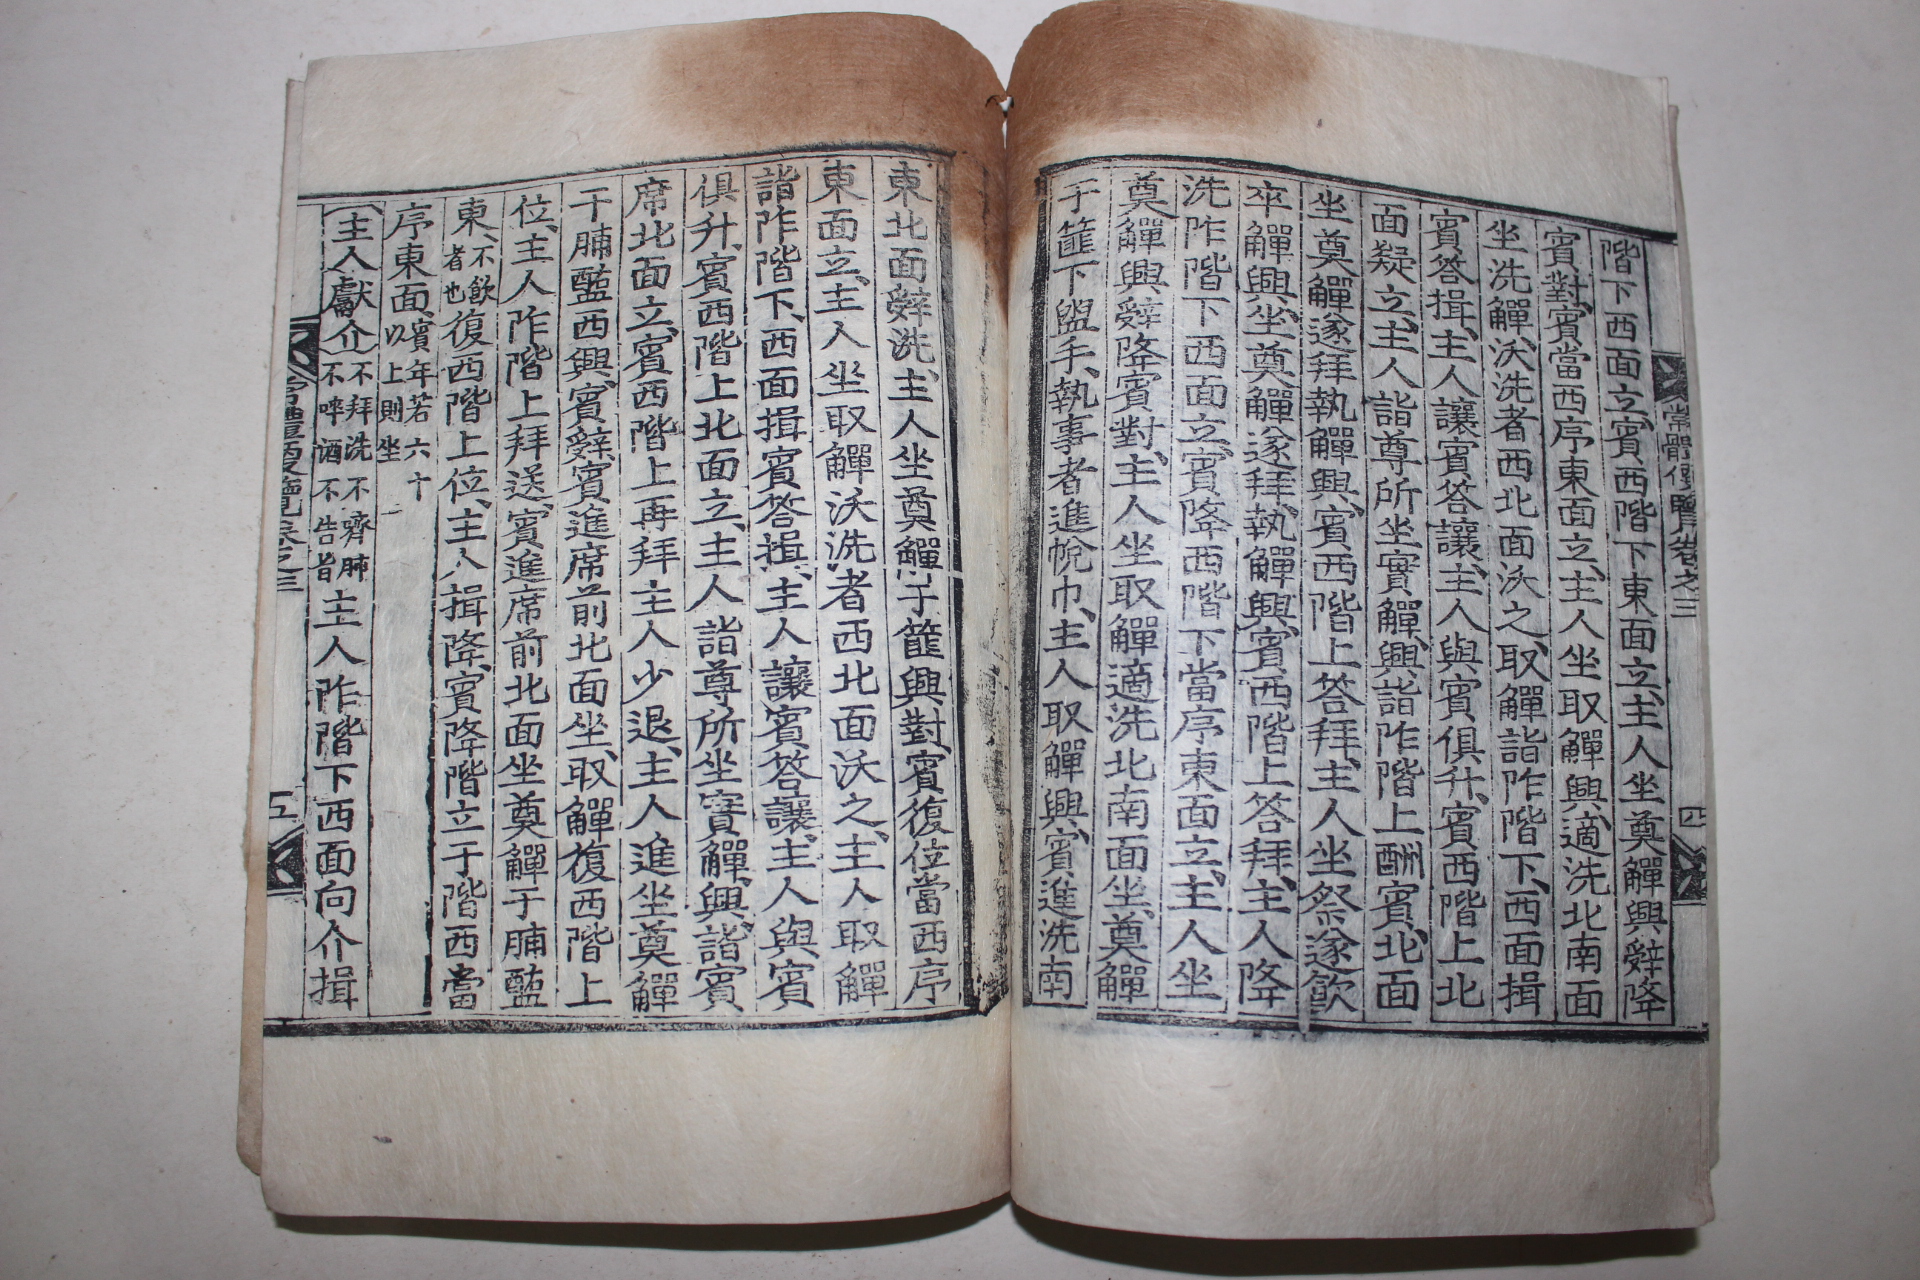 階下西面立賓西階下東面立主人坐奠觶興辭降
賓對賓當西序東面立主人坐取觶興適洗北南面
坐洗觶沃洗者西北面沃之取觶詣阼階下西面揖
賓答揖主人讓賓答讓主人與賓俱升賓西階上北
面疑立主人詣尊所坐實觶興詣阼階上酬賓北面
坐奠觶遂拜執觶興賓西階上答拜主人坐祭遂飮
卒觶興坐奠觶遂拜執觶興賓西階上答拜主人降
洗阼階下西面立賓降西階下當序東面立主人坐
奠觶興辭降賓對主人坐取觶適洗北南面坐奠觶
于篚下盥手執事者進帨巾主人取觶興賓進洗南
常體便覽卷之三 四
東北面辭洗主人坐奠觶于篚興對賓復位當西序
東面立主人坐取觶沃洗者西北面沃之主人取觶
詣阼階下西面揖賓答揖主人讓賓答讓主人與賓
俱升賓西階上北面立主人詣尊所坐實觶興詣賓
席北面立賓西階上再拜主人少退主人進坐奠觶
于脯醢西興賓辭賓進席前北面坐取觶復西階上
位主人阼階上拜送賓進席前北面坐奠觶于脯醢
東不飮者也復西階上位主人揖降賓降階立于階西當
序東面賓年若六十以上則坐
主人獻介不拜洗不嚌肺不啐酒不告旨主人阼階下西面向介揖
禮要覽卷之三 五